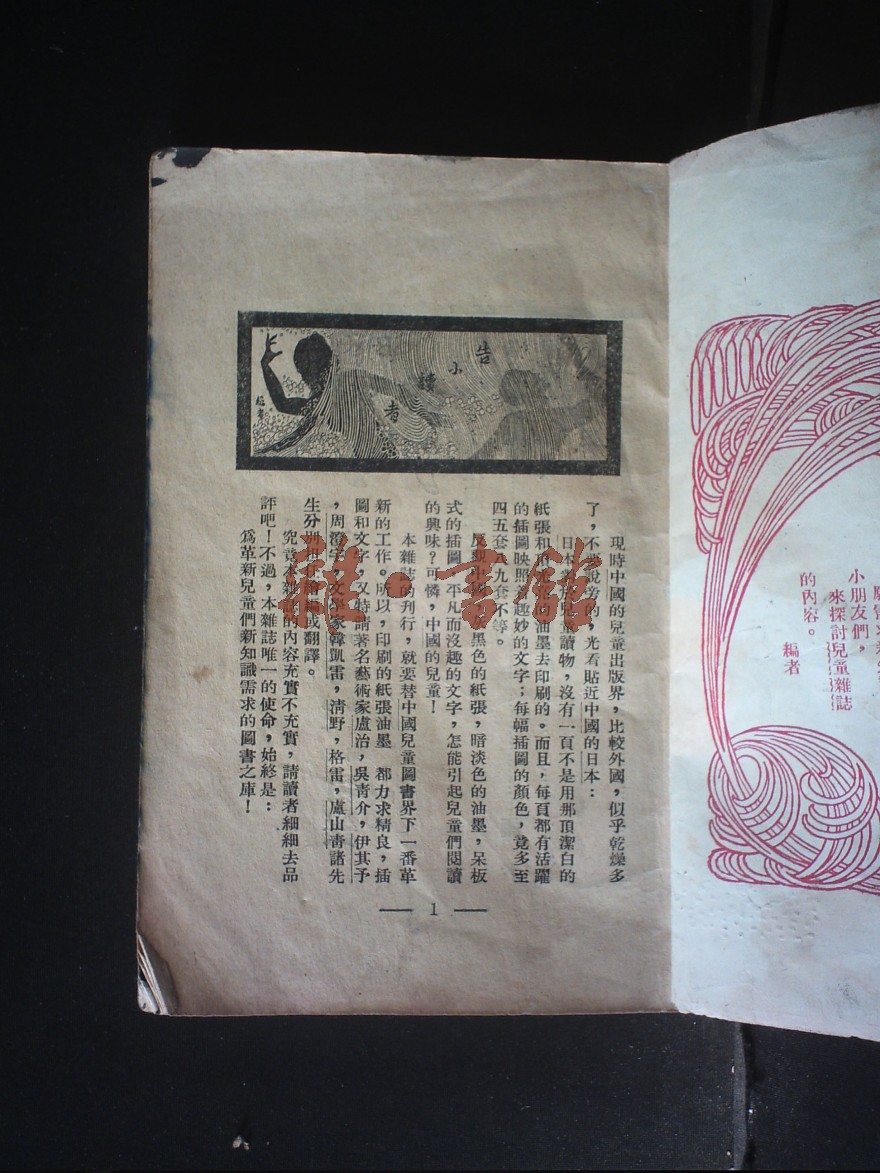 告小讀者
編者
現時中國的兒童出版界，比較外國，似乎乾燥多
了，不要說旁的，光看貼近中國的日本：
日本對於兒童讀物，沒有一頁不是用那頂潔白的
紙張和頂光亮的油墨去印刷的。而且，每頁都有活躍
的插圖映照着趣妙的文字；每幅插圖的顏色，竟多至
四五套八九套不等。
反觀中國，灰黑色的紙張，暗淡色的油墨，呆板
式的插圖，平凡而沒趣的文字，怎能引起兒童們閱讀
的興味？可憐，中國的兒童！
本雜誌的刊行，就要替中國兒童圖書界下一番革
新的工作。所以，印刷的紙張油墨 都力求精良，插
圖和文字，又特請著名藝術家盧治，吳青介，伊其予
，周澄宇，文學家韓凱雷，清野，格雷，盧山青諸先
生分別担任繪編或翻譯。
究竟本雜誌的內容充實不充實，請讀者細細去品
評吧！不過，本雜誌唯一的使命，始終是：
爲革新兒童們新知識需求的圖書之庫！
— 1 —
小朋友們，
來探討兒童雜誌
的內容。
編者
雜·書館